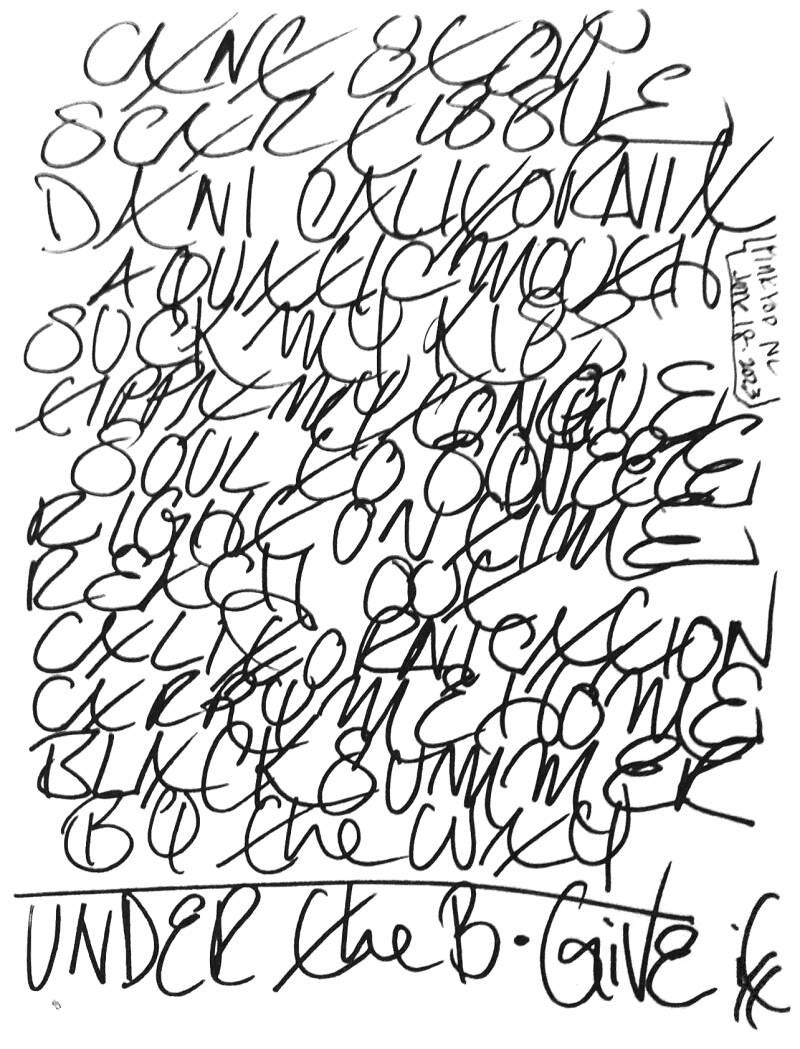 CANT STOP
SCAR TISSUE
DANI CALIFORNIA
AQUATIC MOUTH
SUCK MY KISS
TIPPA MY TONGUE
SOUL TO SQUEEZE
RIGHT ON TIME
REACH OUT
CALIFORNICATION
CARRY ME HOME
BLACK SUMMER
BY the WAY
UNDER the B · GiVE it
PINKPOP NL
JUNE 18. 2023